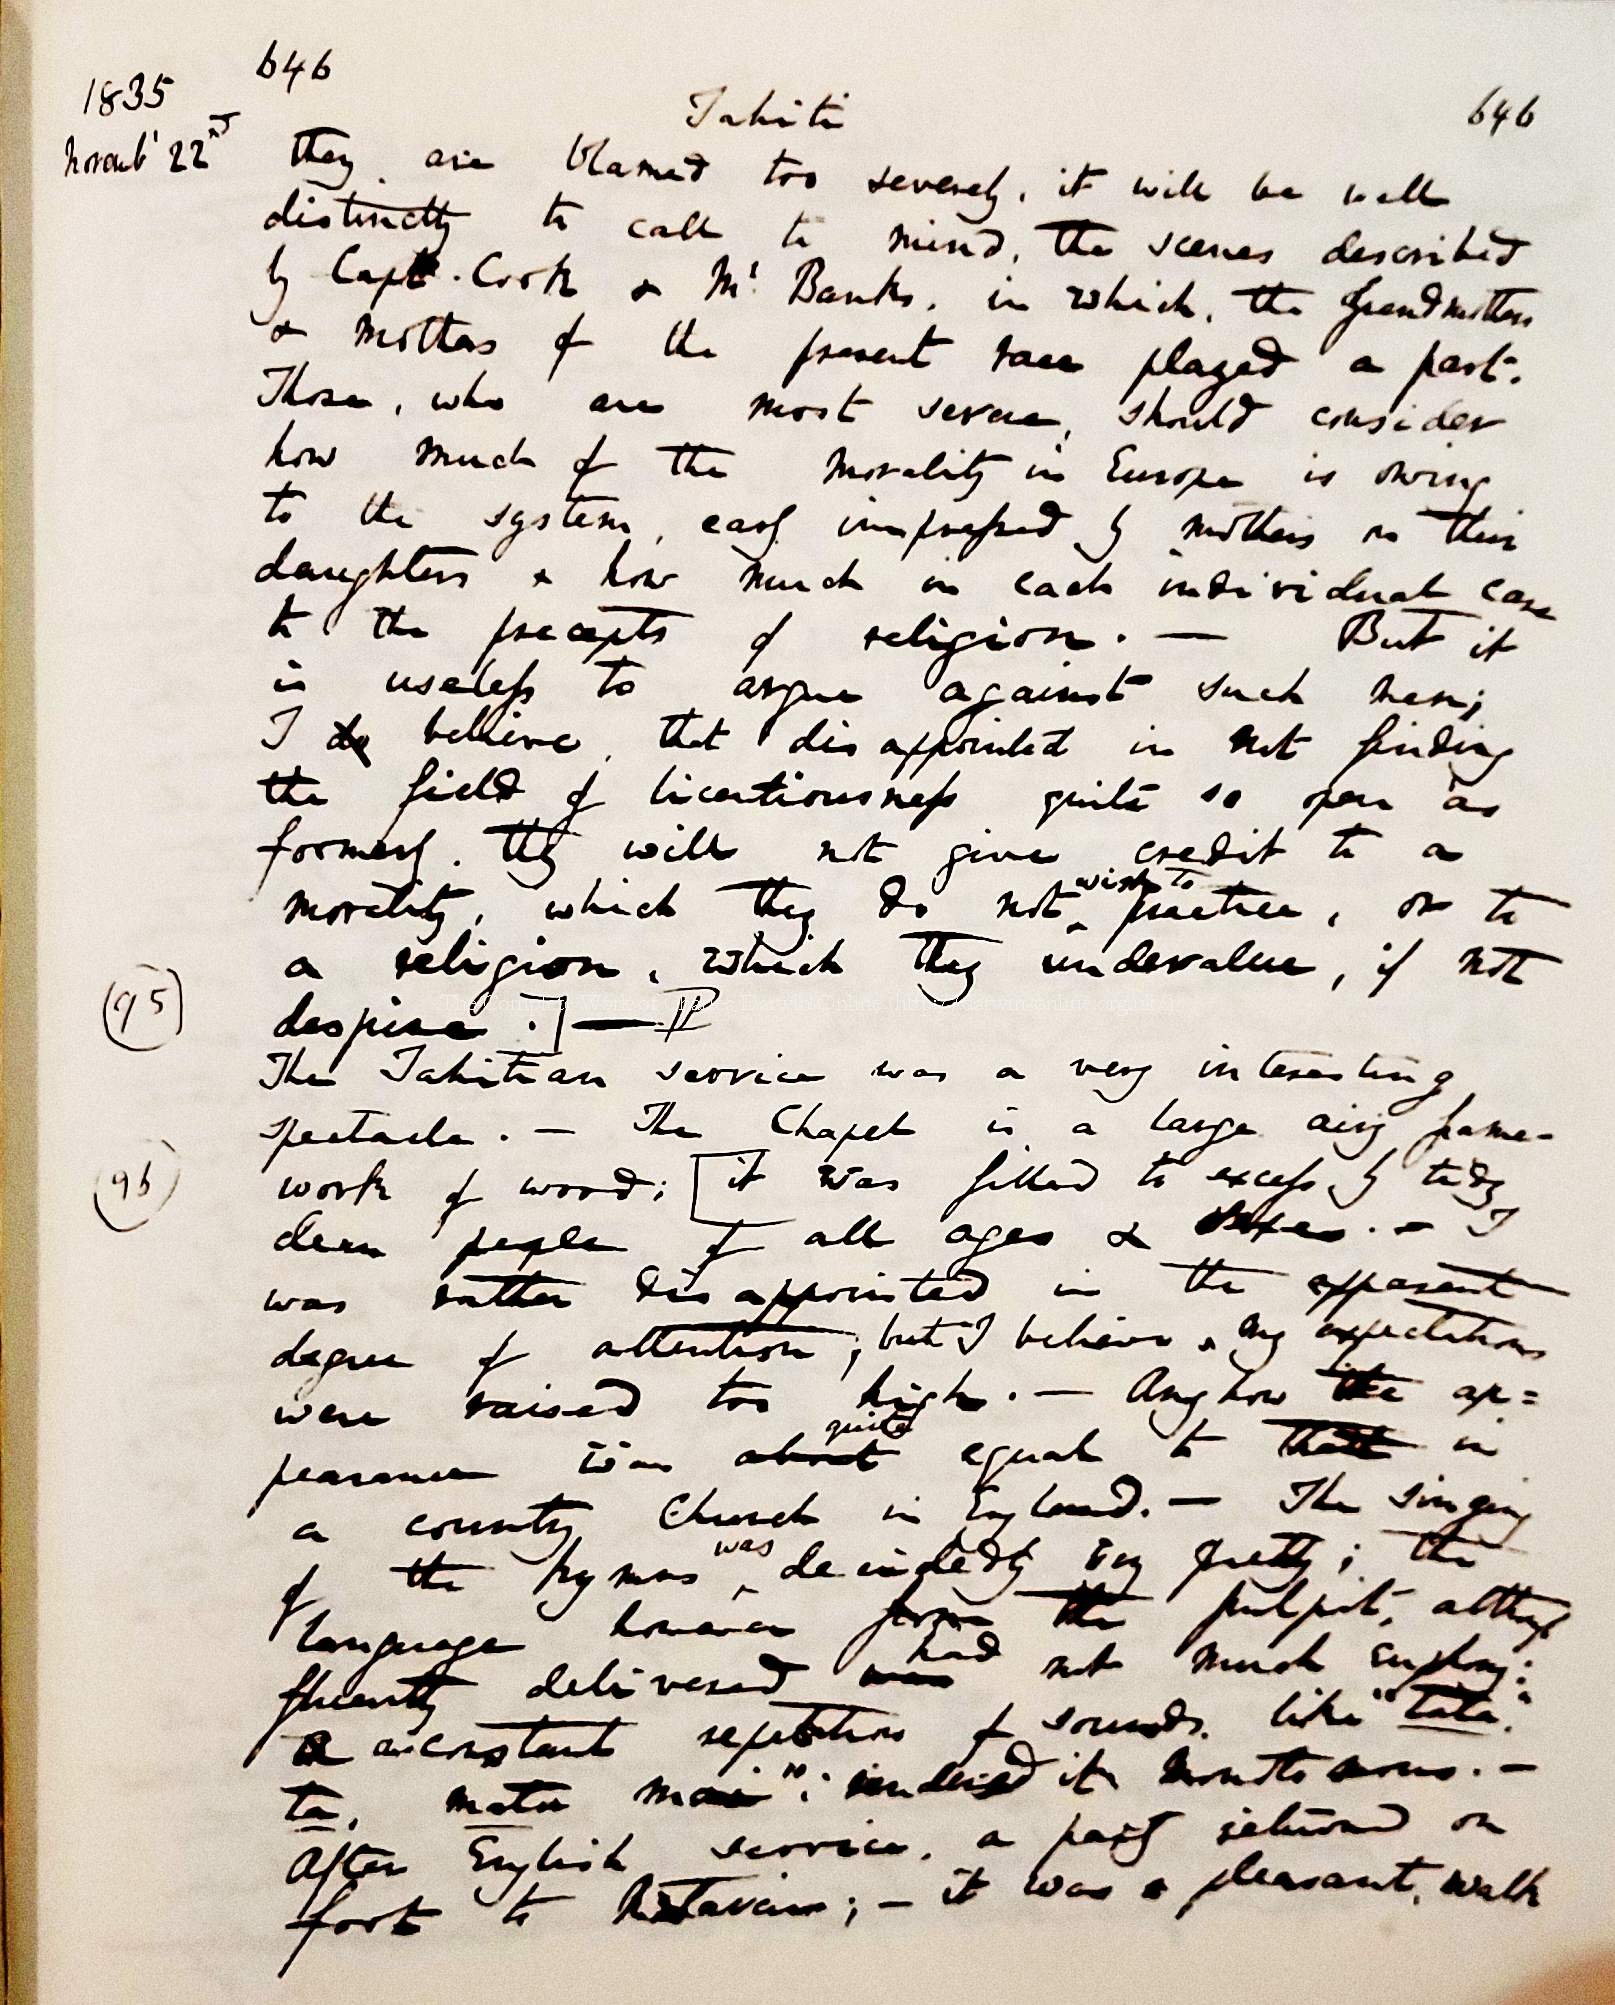 646
1835
Tahiti
646
Novemb' 22nd
they are blamed too severely, it will be well
distinctly to call to mind, the scenes described
by Capt. Cook & Mr Banks, in which, the Grandmothers
& mothers of the present race played a part.
Those, who are most severe, should consider
how much of the morality in Europe is owing
to the system, early impressed by mothers on their
daughters & how much in each individual case
to the precepts of religion. — But it
is useless to argue against such men;
I do believe, that disappointed in not finding
the field of licentiousness quite so open as
formerly. They will not give credit to a
wish to
morality, which they do not practice, or to
a religion, which they undervalue, if not
(95)
despise.] —
The Tahitian service was a very interesting
spectacle. — The Chapel is a large airy frame-
(96)
work of wood; [it was filled to excess by tidy
clean people of all ages & sexes. — I
was rather disappointed in the apparent
degree of attention; but I believe my expectations
were raised too high. — Anyhow the ap=
quite
pearance was about equal to that in
a country Church in England. — The singing
was
of the hymns decidedly very pretty; the
language however from the pulpit, although
had
fluently delivered was not much euphony:
a constant repetition of sounds, like "tata
ta, mata mai"; rendered it monotonous. —
After English service, a party returned on
foot to Matavai; — it was a pleasant walk